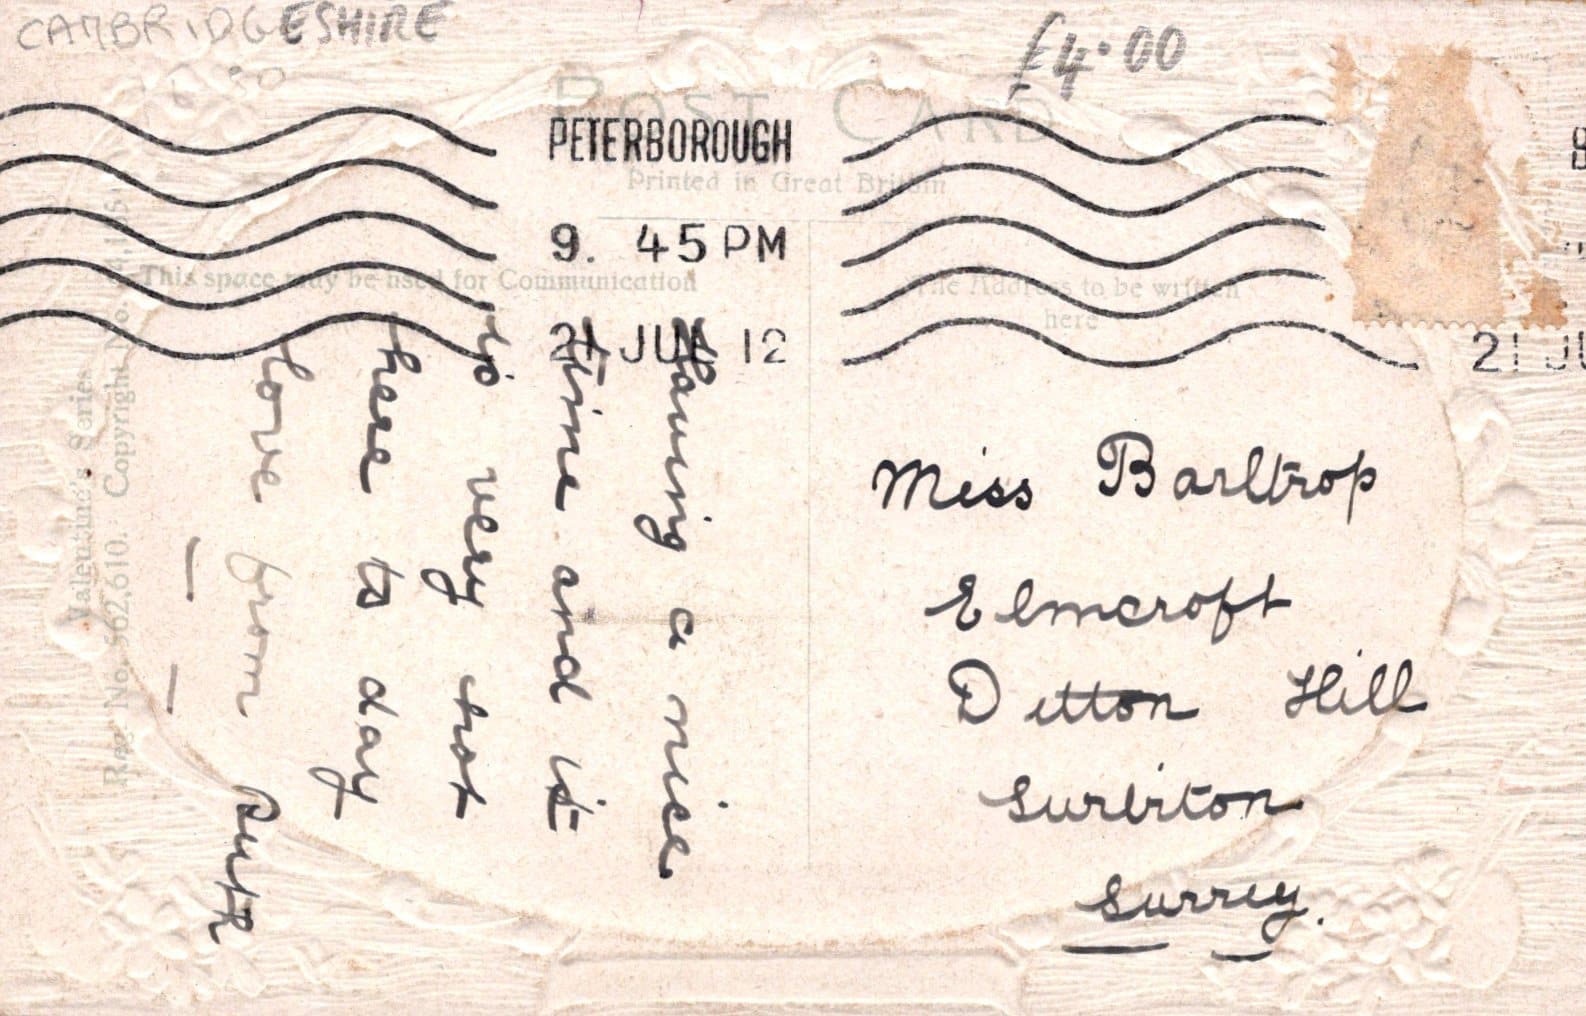 CAMBRIDGESHIRE
£4.00
POST CARD
PETERBOROUGH
Printed in Great Britain
9. 45 PM
21 JUN 12
This space may be used for Communication
The Address to be written
here
21 JU
Valentine's Series
Copyright
Having a nice
time and it
is very hot
here to day
love from Ruth
Miss Barltrop
Elmcroft
Ditton Hill
Surbiton
Surrey.